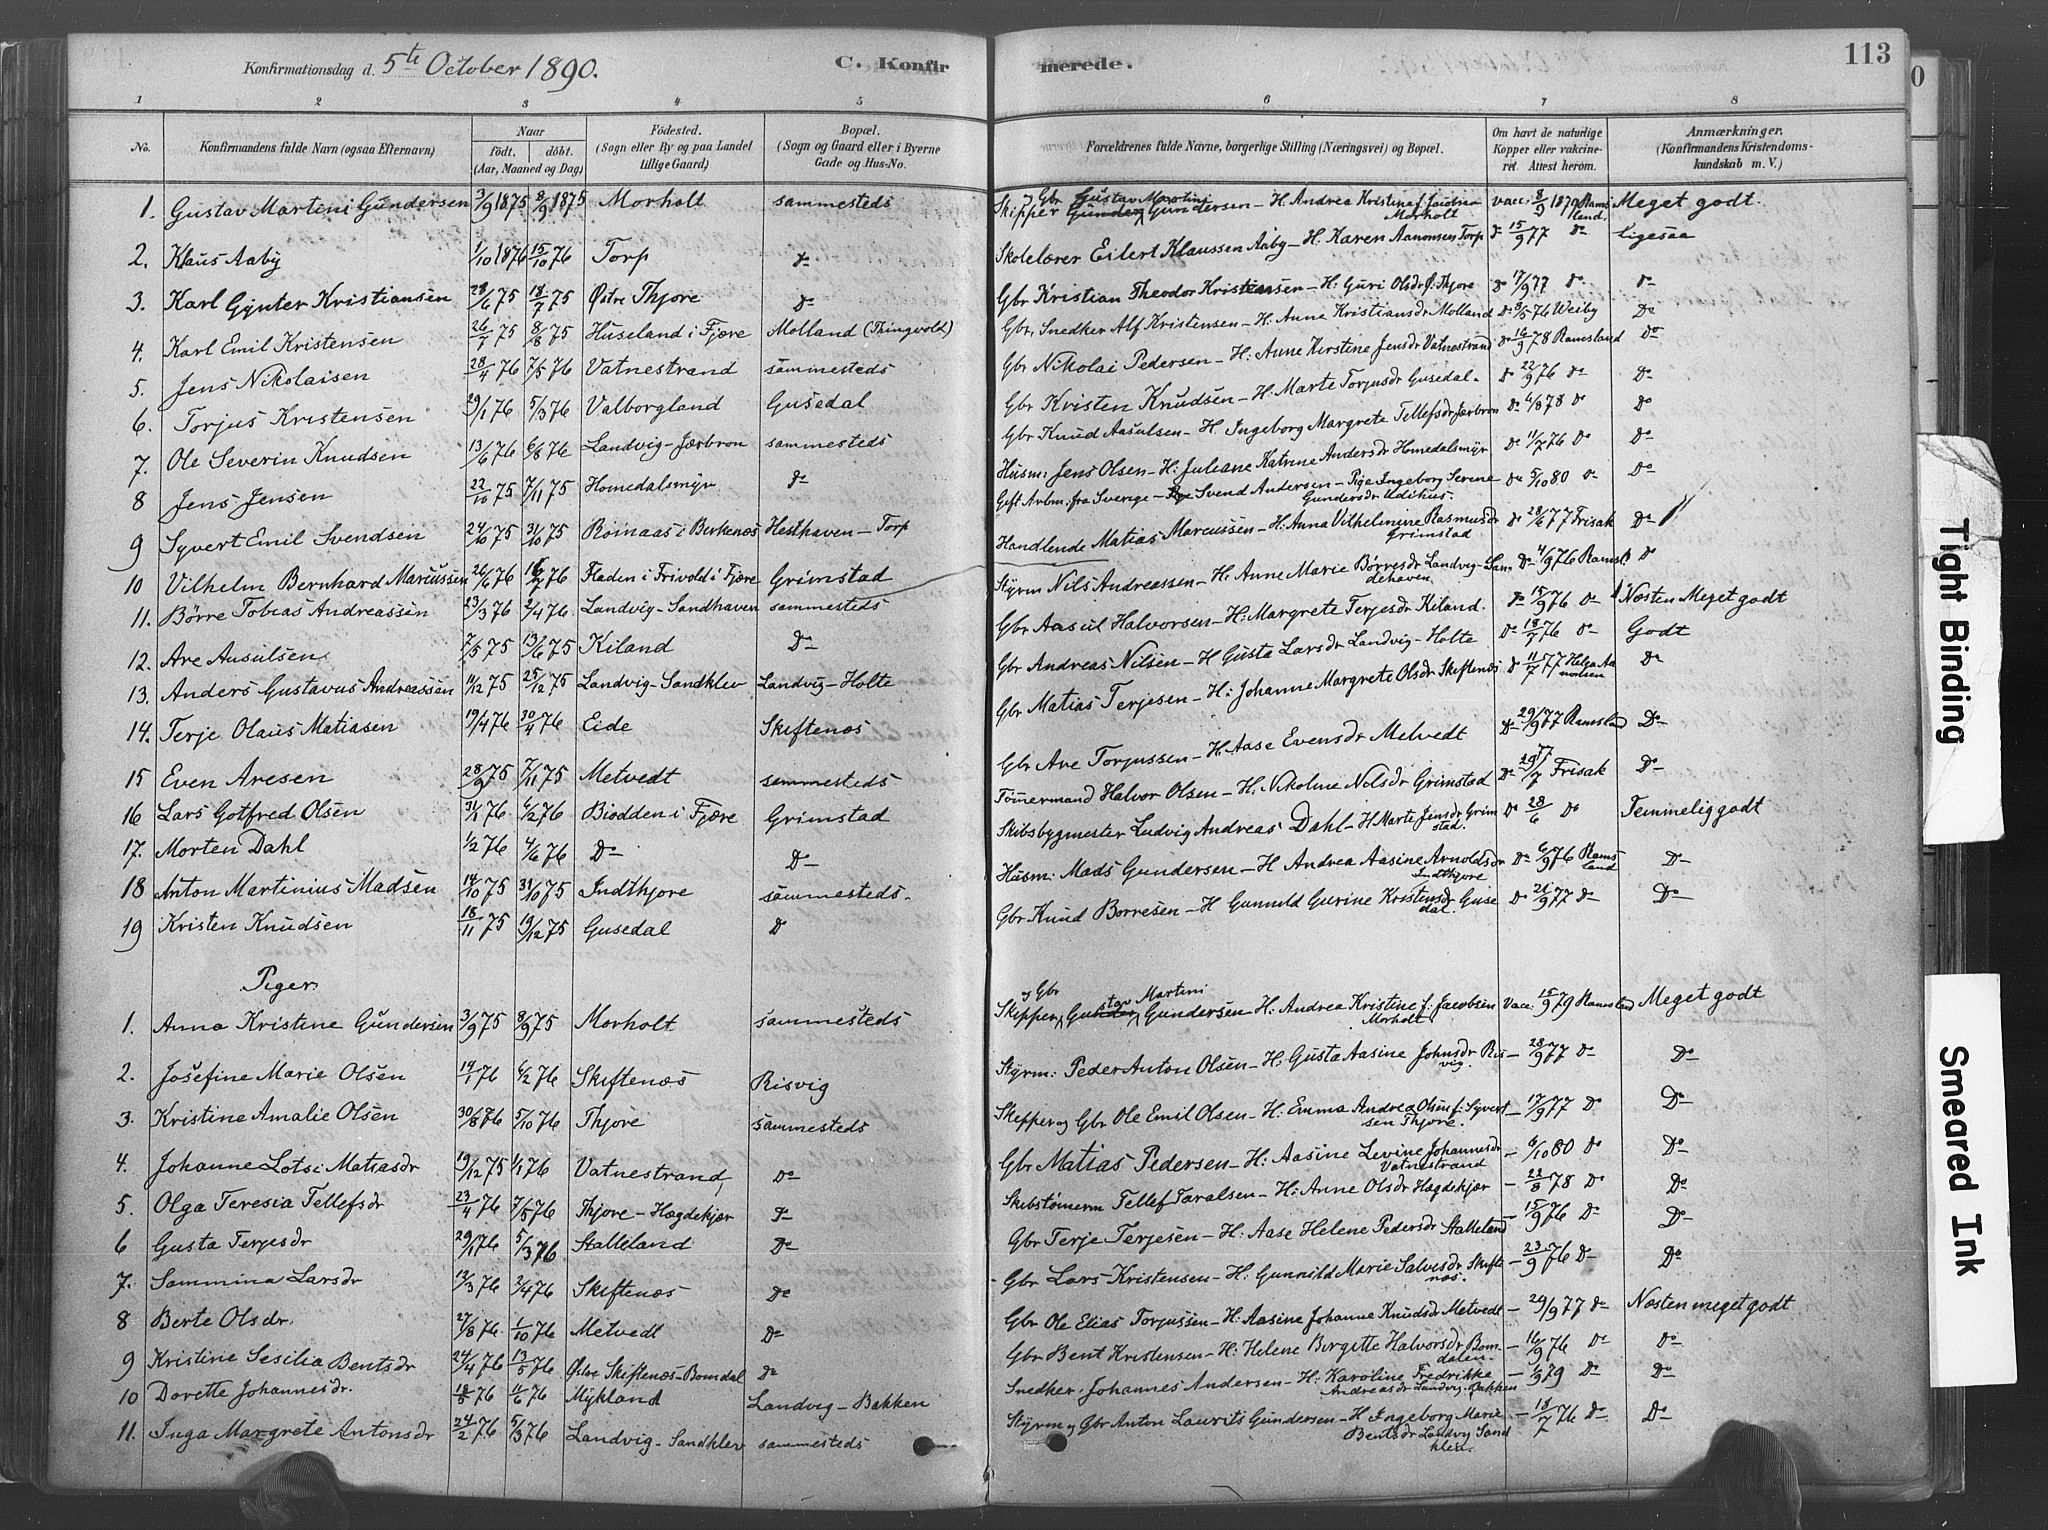 Konfirmationsdag d. 5te October 1890. C. Konfirmerede. 113
1 2 3 4 5 6 7 8
No. Konfirmandens fulde Navn (ogsaa Efternavn) Naar født, døbt. (Aar, Maaned og Dag) Fødested. (Sogn eller By og paa Landet tillige Gaard) Bopæl. (Sogn og Gaard eller i Byerne Gade og Hus-No. Forældrenes fulde Navne, borgerlige Stilling (Næringsvei) og Bopæl. Om havt de naturlige Kopper eller vaccineret. Attest herom. Anmærkninger. (Konfirmandens Kristendomskundskab m. V.)
1. Gustav Martini Gundersen 3/9 1875 8/9 1875 Morholt sammesteds Skipper og Gbr Gustav Martini Gundersen - H. Andrea Kristine f. Jacobsen Morholt vac: 8/9 1879 Ramsland. Meget godt.
2. Klaus Aaby 1/10 1876 15/10 76 Torp Do Skolelærer Eilert Klaussen Aaby - H. Karen Aanonsen Torp Do 15/9 77 Do ligesaa
3. Karl Gynter Kristiansen 28/6 75 18/7 75 Østre Thjore Do Gbr Kristian Theodor Kristiansen - H: Guri Olsdr Ø. Thjore Do 17/9 77 Do Do
4. Karl Emil Kristensen 26/7 75 8/8 75 Huseland i Fjære Molland (Thingvolt) Gbr, Snedker Alf Kristensen - H. Anne Kristiansdr Molland Do 5/5 76 Weiby Do
5. Jens Nikolaisen 28/4 76 7/5 76 Vatnestrand sammesteds Gbr Nikolai Pedersen - H: Anne Kirstine Jensdr Vatnestrand Do 16/9 78 Ramsland Do
6. Torjus Kristensen 29/1 76 5/3 76 Valborgland Gusedal Gbr Kristen Knudsen - H: Marte Torjusdr Gusedal. Do 22/9 76 Do Do
7. Ole Severin Knudsen 13/6 76 6/8 76 Landvig-Jærbron sammesteds Gbr Knud Aasulsen - H. Ingeborg Margrete Tellefsdr Jærbron Do 4/8 78 Do Do
8 Jens Jensen 22/10 75 7/11 75 Homedalsmyr Do Husm: Jens Olsen - H: Juliane Katrine Andersdr Homedalsmyr Do 11/7 76 Do Do
9 Syvert Emil Svendsen 24/10 75 31/10 75 Roinaas i Birkenes Hesthaven - Torp Gift Arbm. fra Sverige - Svend Andersen - Pige Ingeborg Serine Gundersdr Do 5/10 80 Do Do
10 Vilhelm Bernhard Marcussen 26/6 76 16/7 76 Fladen i Frivold i Fjære Grimstad Handlende Matias Marcussen - H: Anna Vilhelmine Rasmusdr Grimstad Do 28/6 77 Frisak Do
11. Børre Tobias Andreassen 23/3 76 2/4 76 Landvig-Sandhaven sammesteds Styrm Nils Andreassen - H. Anne Marie Børresdr Landvig-Sandehaven Do 4/9 76 Ramsl. Do
12. Are Ausulsen 7/5 75 13/6 75 Kiland Do Gbr Aasul Halvorsen - H: Margrete Terjesdr Kiland. Do 15/9 76 Do Næsten Meget godt
13. Anders Gustavus Andreassen 11/12 75 25/12 75 Landvig-Sandklev Landvig-Holte Gbr Andreas Nilsen - H Gusta Larsdr Landvig-Holte Do 18/7 76 Do Godt
14. Terje Olaus Matiasen 19/4 76 30/4 76 Eide Skiftenæs Gbr Matias Terjesen - H: Johanne Margrete Olsdr Skiftenæs Do 11/7 77 Helga Aanonsen Do
15 Even Aresen 28/9 75 7/11 75 Metvedt sammesteds Gbr Are Torjussen - H: Aase Evensdr Metvedt Do 29/9 77 Ramsland Do
16 Lars Gotfred Olsen 31/1 76 4/2 76 Biodden i Fjære Grimstad Tømmermand Halvor Olsen - H. Nikoline Nilsdr Grimstad Do 29/7 77 Frisak Do
17. Morten Dahl 1/2 76 4/6 76 Do Do Skibsbygmester Ludvig Andreas Dahl - H Marte Jensdr Grimstad. Do 28/6 Do Temmelig godt
18 Anton Martinius Madsen 14/10 75 31/10 75 Indthjore sammesteds. Husm: Mads Gundersen - H Andrea Aasine Arnoldsdr Indthjore Do 6/9 76 Ramsland Do
19 Kristen Knudsen 18/11 75 19/12 75 Gusedal Do Gbr Knud Børresen - H Gunnild Gurine Kristensdr Gusedal. Do 21/9 77 Do Do
Piger
1. Anna Kristine Gundersen 3/9 75 8/9 75 Morholt sammesteds Skipper og Gbr Gustav Martini Gundersen - H: Andrea Kristine f. Jacobsen Morholt Vacc: 15/9 79 Ramsland Meget godt
2. Josefine Marie Olsen 19/1 76 4/2 76 Skiftenæs Risvig Styrm: Peder Anton Olsen - H: Gusta Aasine Johnsdr Risvig. - 28/9 77 Do Do
3. Kristine Amalie Olsen 30/8 76 5/10 76 Thjore sammesteds Skipper og Gbr Ole Emil Olsen - H: Emma Andrea Olsen f: Syvertsen Thjore. - 17/9 77 Do Do
4. Johanne Lotsi Matiasdr 19/12 75 1/1 76 Vatnestrand Do Gbr Matias Pedersen - H: Aasine Levine Johannesdr Vatnestrand - 6/10 80 Do Do
5. Olga Teresia Tellefsdr 23/4 76 7/5 76 Thjore-Hægdekjær Do Skibstømerm Tellef Taralsen - H: Anne Olsdr Hægdekjær - 22/8 78 Do Do
6 Gusta Terjesdr 29/1 76 5/3 76 Stalleland Do Gbr Terje Terjesen - H: Aase Helene Pedersdr Stalleland - 15/9 76 Do Do
7. Sammina Larsdr 12/3 76 2/4 76 Skiftenæs Do Gbr Lars Kristensen - H: Gunnild Marie Salvesdr Skiftenæs. - 23/9 76 Do Do
8 Berte Olsdr. 27/8 76 1/10 76 Metvedt Do Gbr Ole Elias Torjussen - H: Aasine Johanne Knudsdr Metvedt - 29/9 77 Do Næsten meget godt
9 Kristine Sesilia Bentsdr 24/4 76 13/5 76 Østre Skiftenæs-Bomdal Do Gbr Bent Kristensen - H: Helene Birgitte Halvorsdr Bomdalen. - 16/9 76 Do Do
10 Dorette Johannesdr. 18/5 76 11/6 76 Mykland Landvig-Bakken Snedker Johannes Andersen - H: Karoline Fredrikke Andreasdr Landvig-Bakken - 1/9 79 Do Do
11. Inga Margrete Antonsdr 24/2 76 5/3 76 Landvig-Sandklev sammesteds Styrm og Gbr Anton Laurits Gundersen - H Ingeborg Marie Bentsdr Landvig Sandklev. - 18/7 76 Do Do
Tight Binding
Smeared Ink